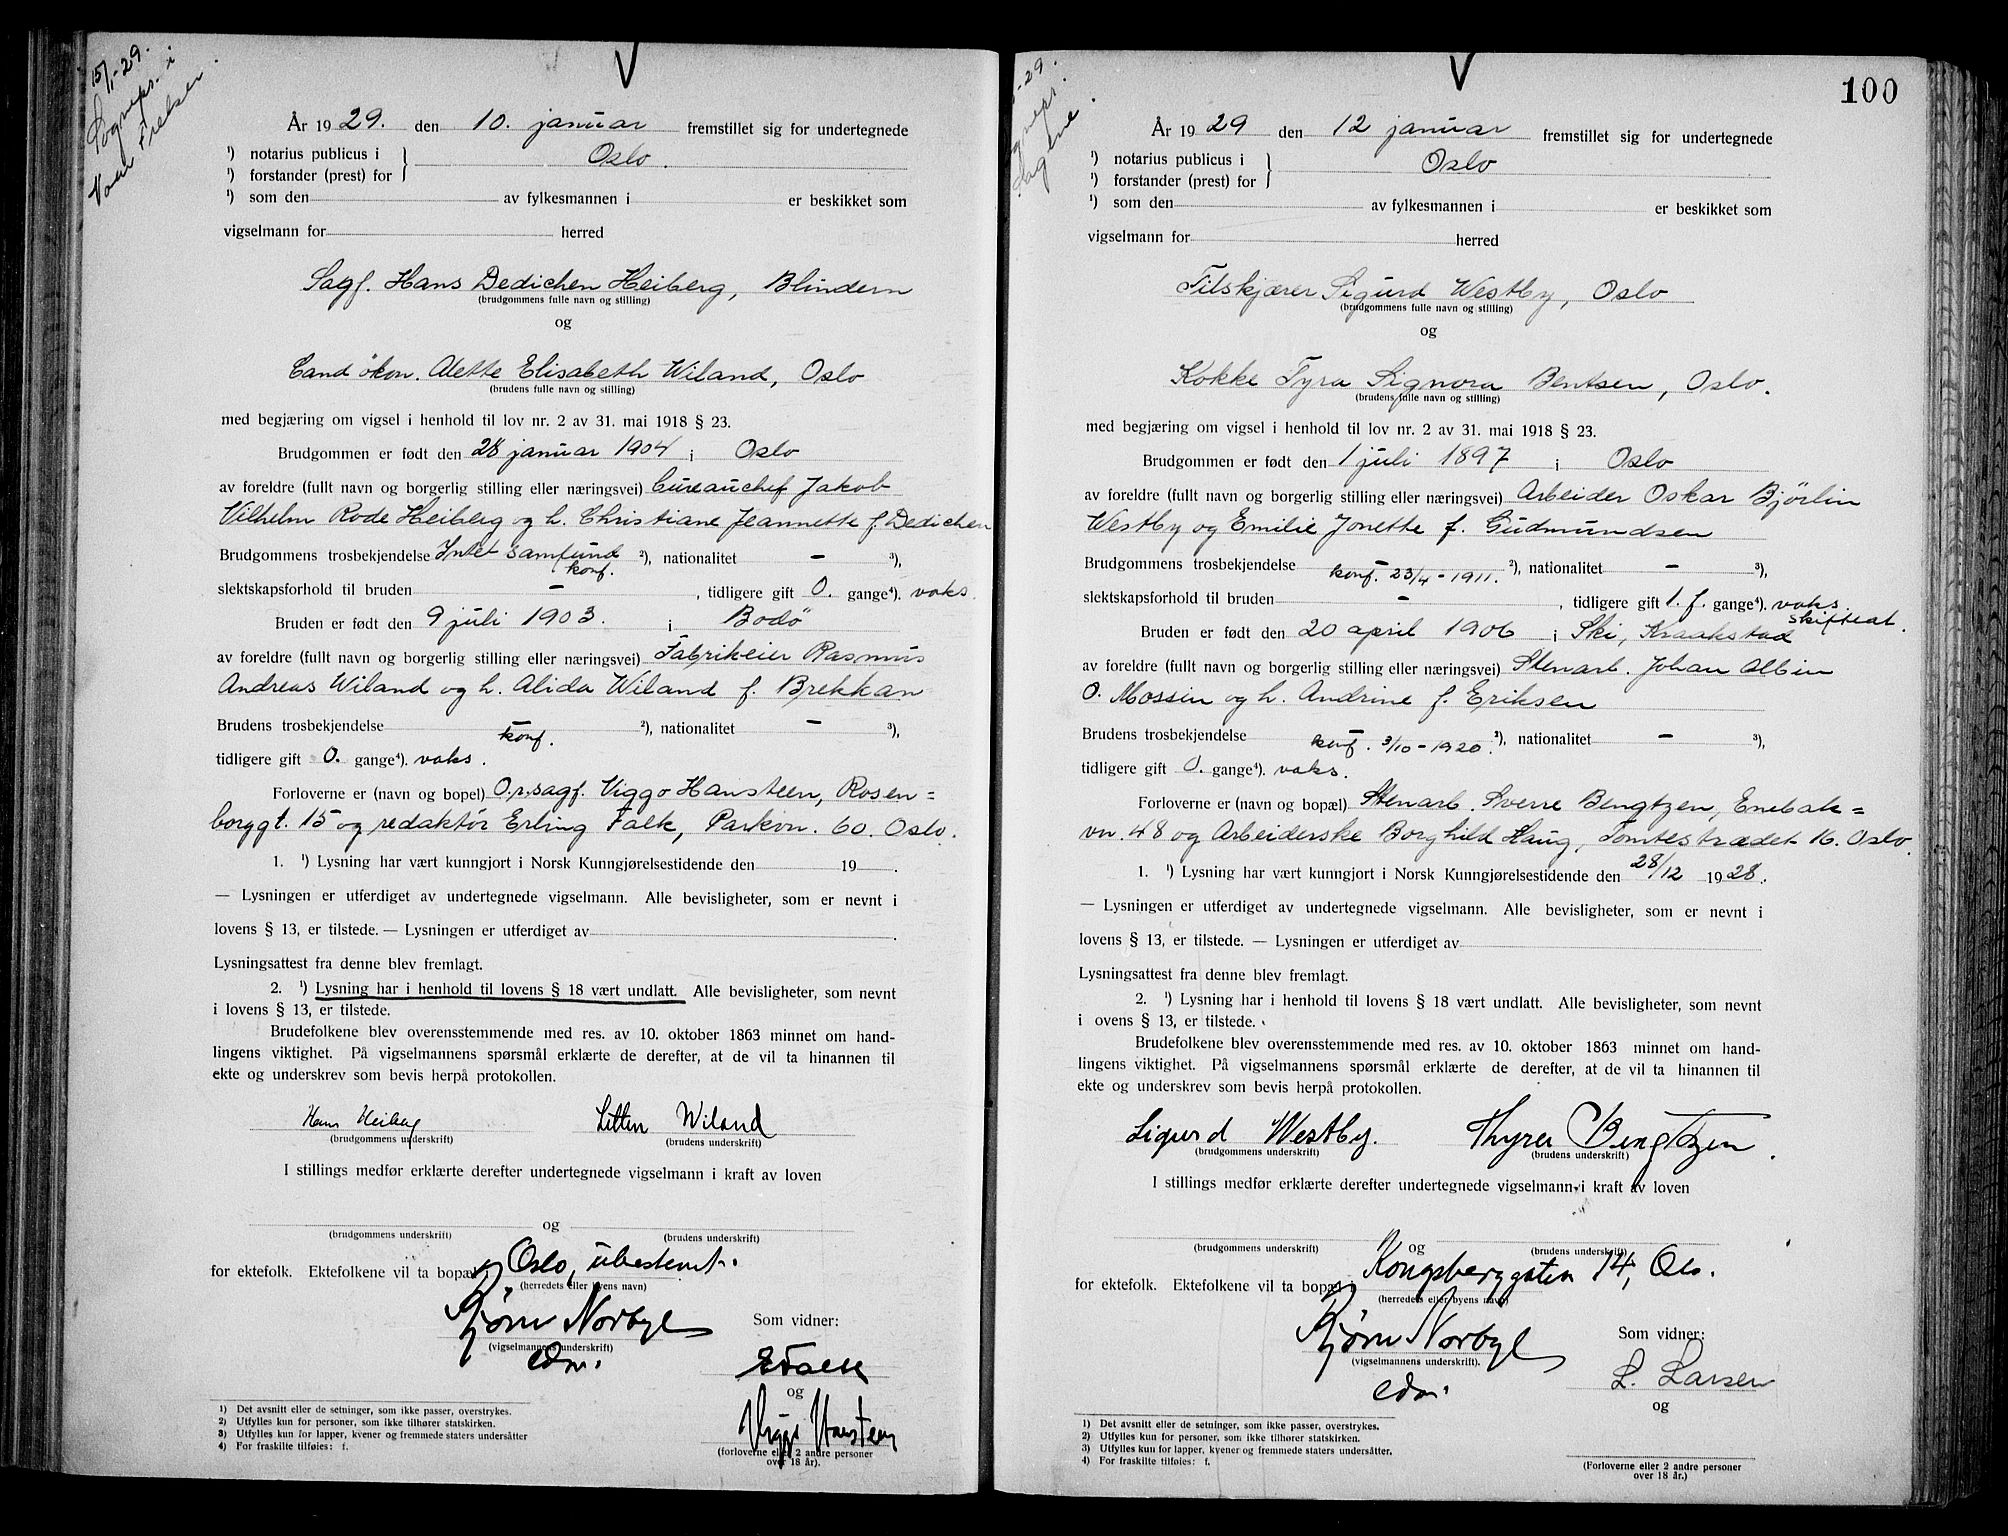 15/1-29.
Sogneps. i
Vaar Frelser.
År 1929. den 10. januar fremstillet sig for undertegnede
¹) notarius publicus i } Oslo.
¹) forstander (prest) for
¹) som den av fylkesmannen i er beskikket som
vigselmann for herred
Sagf. Hans Dedichen Heiberg, Blindern
(brudgommens fulle navn og stilling)
og
Cand økon. Alette Elisabeth Wiland, Oslo
(brudens fulle navn og stilling)
med begjæring om vigsel i henhold til lov nr. 2 av 31. mai 1918 § 23.
Brudgommen er født den 28 januar 1904 i Oslo
av foreldre (fullt navn og borgerlig stilling eller næringsvei) Bureauchef Jakob
Vilhelm Rode Heiberg og h. Christiane Jeannette f. Dedichen
Brudgommens trosbekjendelse Intet samfund konf. ²), nationalitet — ³),
slektskapsforhold til bruden — , tidligere gift 0. gange⁴). vaks.
Bruden er født den 9 juli 1903. i Bodö
av foreldre (fullt navn og borgerlig stilling eller næringsvei) Fabrikeier Rasmus
Andreas Wiland og h. Alida Wiland f. Brekkan
Brudens trosbekjendelse — konf. ²), nationalitet — ³),
tidligere gift 0. gange⁴). vaks.
Forloverne er (navn og bopel) O.r.sagf. Viggo Hansteen, Rosen=
borggt. 15 og redaktör Erling Falk, Parkvn. 60. Oslo.
1. ¹) Lysning har vært kunngjort i Norsk Kunngjørelsestidende den 19 .
— Lysningen er utferdiget av undertegnede vigselmann. Alle bevisligheter, som er nevnt i
lovens § 13, er tilstede. — Lysningen er utferdiget av .
Lysningsattest fra denne blev fremlagt.
2. ¹) Lysning har i henhold til lovens § 18 vært undlatt. Alle bevisligheter, som nevnt
i lovens § 13, er tilstede.
Brudefolkene blev overensstemmende med res. av 10. oktober 1863 minnet om hand-
lingens viktighet. På vigselmannens spørsmål erklærte de derefter, at de vil ta hinannen til
ekte og underskrev som bevis herpå protokollen.
Hans Heiberg Litten Wiland
(brudgommens underskrift) (brudens underskrift)
I stillings medfør erklærte derefter undertegnede vigselmann i kraft av loven
og
(brudgommens underskrift) (brudens underskrift)
for ektefolk. Ektefolkene vil ta bopæl Oslo, ubestemt.
(herredets eller byens navn)
Bjørn Norbye Som vidner:
(vigselmannens underskrift)
edm. E Falk
og
Viggo Hansteen
(forloverne eller 2 andre personer
over 18 år).
1) Det avsnitt eller de setninger, som ikke passer, overstrykes.
2) Utfylles kun for personer, som ikke tilhører statskirken.
3) Utfylles kun for lapper, kvener og fremmede staters undersåtter
4) For fraskilte tilføies: f.
100
-29.
Sagene.
År 1929 den 12 januar fremstillet sig for undertegnede
¹) notarius publicus i } Oslo
¹) forstander (prest) for
¹) som den av fylkesmannen i er beskikket som
vigselmann for herred
Filskjærer Sigurd Westby, Oslo
(brudgommens fulle navn og stilling)
og
Kokke Tyra Signora Bentsen, Oslo.
(brudens fulle navn og stilling)
med begjæring om vigsel i henhold til lov nr. 2 av 31. mai 1918 § 23.
Brudgommen er født den 1 juli 1897 i Oslo
av foreldre (fullt navn og borgerlig stilling eller næringsvei) Arbeider Oskar Bjørlin
Westby og Emilie Jonette f. Gudmundsen
Brudgommens trosbekjendelse konf. 23/4-1911. ²), nationalitet — ³),
slektskapsforhold til bruden — , tidligere gift 1. f. gange⁴). vaks. skifteat.
Bruden er født den 20 april 1906 i Ski, Kraakstad
av foreldre (fullt navn og borgerlig stilling eller næringsvei) Stenarb. Johan Albin
O. Mossin og h. Andrine f. Eriksen
Brudens trosbekjendelse konf. 3/10-1920. ²), nationalitet — ³),
tidligere gift 0. gange⁴). vaks.
Forloverne er (navn og bopæl) Stenarb. Sverre Bengtzen, Enebak=
vn. 48 og Arbeiderske Borghild Haug, Tomtestrædet 16. Oslo.
1. ¹) Lysning har vært kunngjort i Norsk Kunngjørelsestidende den 28/12 1928.
— Lysningen er utferdiget av undertegnede vigselmann. Alle bevisligheter, som er nevnt i
lovens § 13, er tilstede. — Lysningen er utferdiget av
Lysningsattest fra denne blev fremlagt.
2. ¹) Lysning har i henhold til lovens § 18 vært undlatt. Alle bevisligheter, som nevnt
i ovens § 13, er tilstede.
Brudefolkene blev overensstemmende med res. av 10. oktober 1863 minnet om hand-
lingens viktighet. På vigselmannens spørsmål erklærte de derefter, at de vil ta hinannen til
ekte og underskrev som bevis herpå protokollen.
Sigurd Westby. Thyra Bengtzen.
(brudgommens underskrift) (brudens underskrift)
I stillings medfør erklærte derefter undertegnede vigselmann i kraft av loven
og
(brudgommens underskrift) (brudens underskrift)
for ektefolk. Ektefolkene vil ta bopæl Kongsberggaten 14, Oslo.
(herredets eller byens navn)
Bjørn Norbye Som vidner:
(vigselmannens underskrift).
edm. L. Larsen
og
(Forloverne eller 2 andre personer
over 18 år.)
1) Det avsnitt eller de setninger, som ikke passer, overstrykes.
2) Utfylles kun for personer, som ikke tilhører statskirken.
3) Utfylles kun for lapper, kvener og fremmede staters undersåtter.
4) For fraskilte tilføies: f.